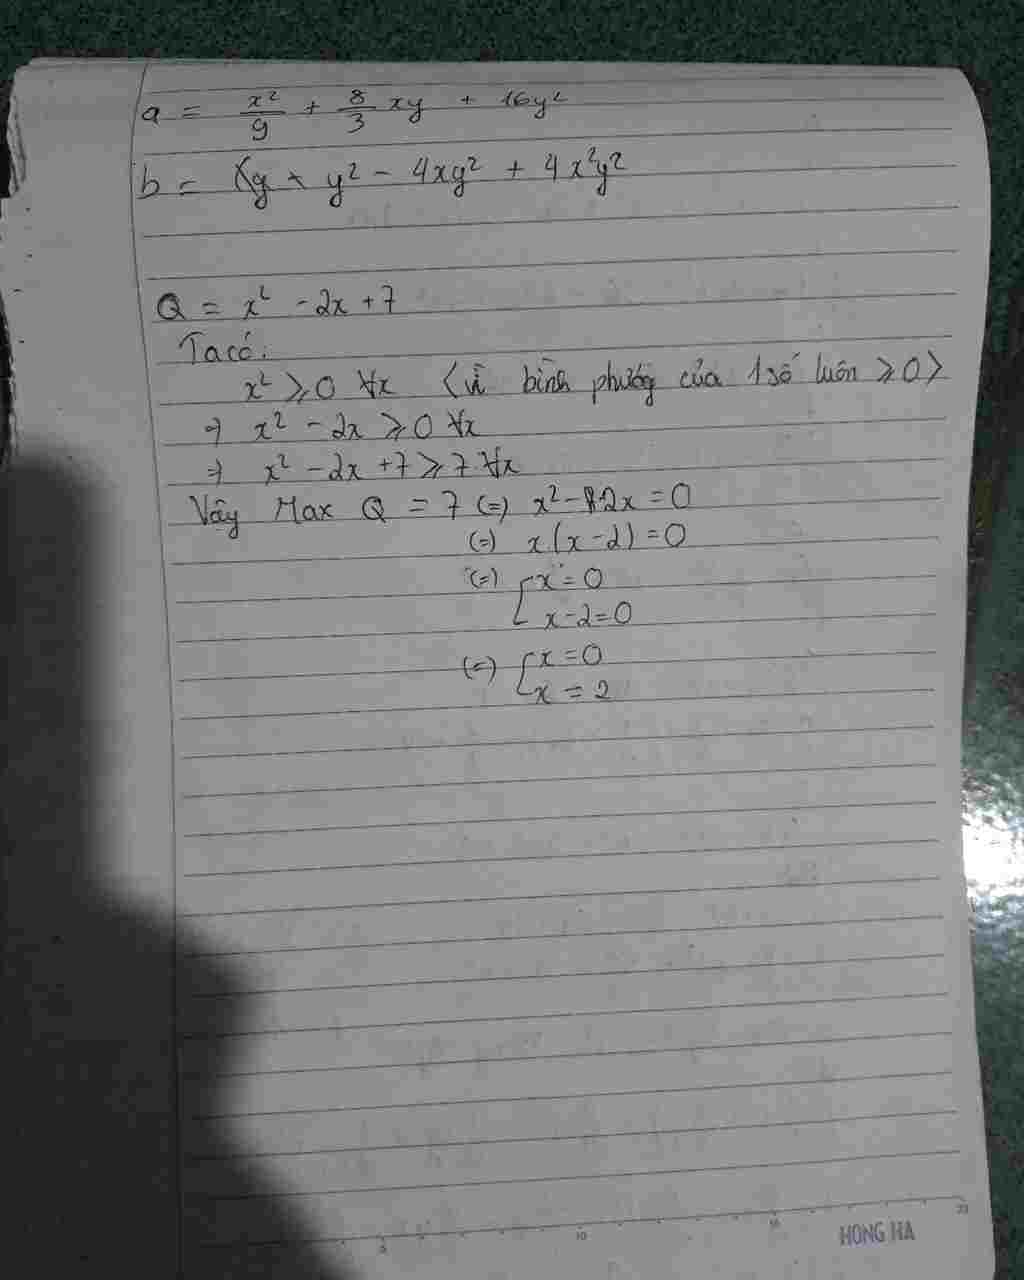 a = x²/9 + 8/3 xy + 16y²
b = xy + y² - 4xy² + 4x²y²
Q = x² - 2x + 7
Ta có:
x² ≥ 0 ∀x (vì bình phương của 1 số luôn ≥ 0)
⇒ x² - 2x ≥ 0 ∀x
⇒ x² - 2x + 7 ≥ 7 ∀x
Vậy Max Q = 7 (=) x² - 2x = 0
(=) x.(x - 2) = 0
(=) [ x = 0
x - 2 = 0
(=) [ x = 0
x = 2
5 10 15 20
HONG HA